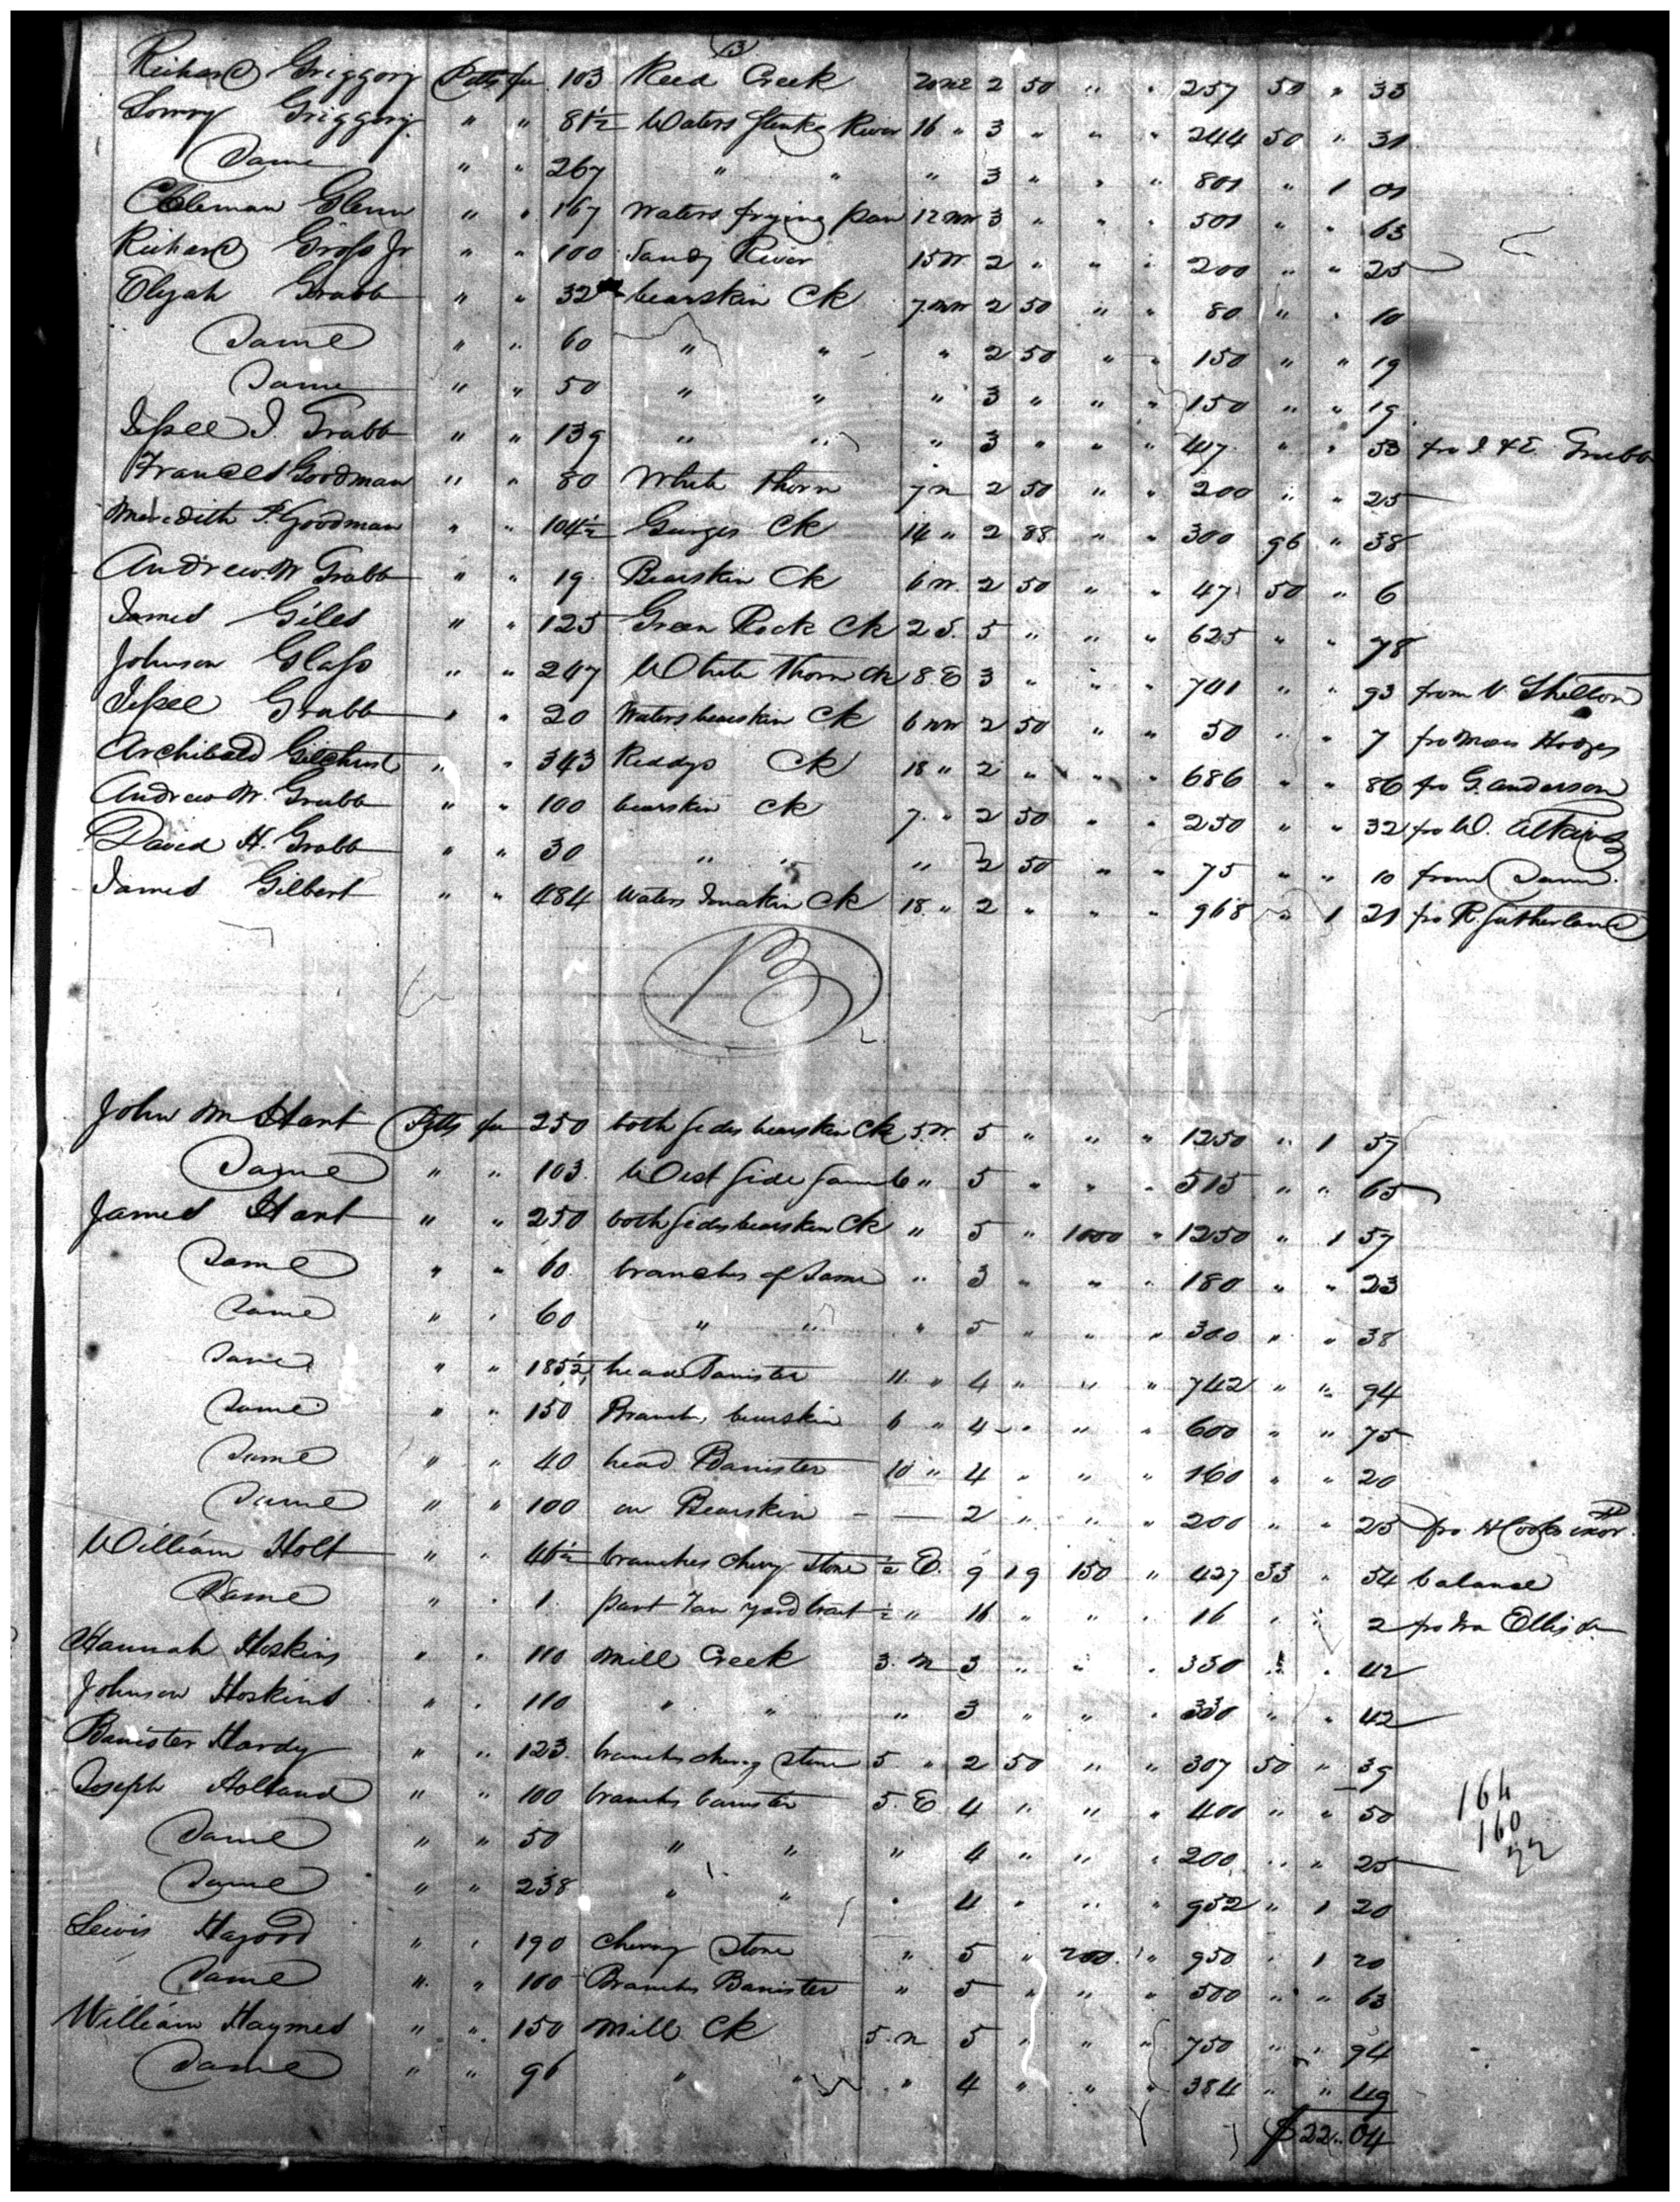 13
Richard Griggory Pitts fee 103 Reed Creek 20 NE 2 50 " " 257 50 " 33
Lowry Griggory " " 81½ Waters Stinkg River 16 " 3 " " " 244 50 " 31
Same " " 267 " " " 3 " " " 801 " 1 01
Coleman Glenn " " 167 Waters frying pan 12 NW 3 " " " 501 " " 63
Richard Gross Jr " " 100 Sandy River 15 W. 2 " " " 200 " " 25
Elijah Grubb " " 32 bearskin Ck 7. NW 2 50 " " 80 " " 10
Same " " 60 " " " 2 50 " " 150 " " 19
Same " " 50 " " " 3 " " " 150 " " 19
Jessee J. Grubb " " 139 " " " 3 " " " 417 " " 53 fro J & E. Grubb
Frances Goodman " " 80 White thorn 7 N 2 50 " " 200 " " 25
Meredith P. Goodman " " 104½ Georges Ck 14 " 2 88 " " 300 96 " 38
Andrew W Grubb " " 19 Bearskin Ck 6 W. 2 50 " " 47 50 " 6
James Giles " " 125 Green Rock Ck 2 S. 5 " " " 625 " " 78
Johnson Glass " " 247 White Thorn Ck 8. E 3 " " " 741 " " 93 from V. Shelton
Jessee Grubb " " 20 Waters bearskin Ck 6 NW 2 50 " " 50 " " 7 fro Moses Hodges
Archibald Gilchrist " " 343 Reddys Ck 18 " 2 " " " 686 " " 86 fro G. Anderson
Andrew W. Grubb " " 100 bearskin Ck 7. " 2 50 " " 250 " " 32 fro W. Atkins
David H. Grubb " " 30 " " " 2 50 " " 75 " " 10 from Same
James Gilbert " " 484 Waters Ck 18. " 2 " " " 968 " 1 21 fro R. Sutherland
13
John M Hart Pitts fee 250 both sides bearskin Ck 5. W. 5 " " " 1250 " 1 57
Same " " 103 West side same 6 " 5 " " " 515 " " 65
James Hart " " 250 both sides bearskin Ck " 5 " 1000 " 1250 " 1 57
Same " " 60 branches of Same " 3 " " " 180 " " 23
Same " " 60 " " " 5 " " " 300 " " 38
Same " " 185½ head Banister 11 " 4 " " " 742 " " 94
Same " " 150 Branches bearskin 6 " 4 " " " 600 " " 75
Same " " 40 head Banister 10 " 4 " " " 160 " " 20
Same " " 100 on Bearskin — 2 " " " 200 " " 25 fro H Cooks exor.
William Holt " " 46½ branches cherry Stone ½ E. 9 19 150 " 427 33 " 54 balance
Same " " 1 part Tan yard tract ½ " 16 " " " 16 " " 2 fro Ira Ellis
Hannah Hoskins " " 110 Mill Creek 3. N 3 " " " 330 " " 42
Johnson Hoskins " " 110 " " " 3 " " " 330 " " 42
Banister Hardy " " 123 branches cherry Stone 5. " 2 50 " " 307 50 " 39
Joseph Holland " " 100 branches banister 5. E 4 " " " 400 " " 50
Same " " 50 " " " 4 " " " 200 " " 25
Same " " 238 " " " 4 " " " 952 " 1 20
164
160
22
Lewis Hagood " " 190 Cherry Stone " 5 " 200 " 950 " 1 20
Same " " 100 Branches Banister " 5 " " " 500 " " 63
William Haymes " " 150 Mill Ck 5. N 5 " " " 750 " " 94
Same " " 96 " " " 4 " " " 384 " " 49
$22.04